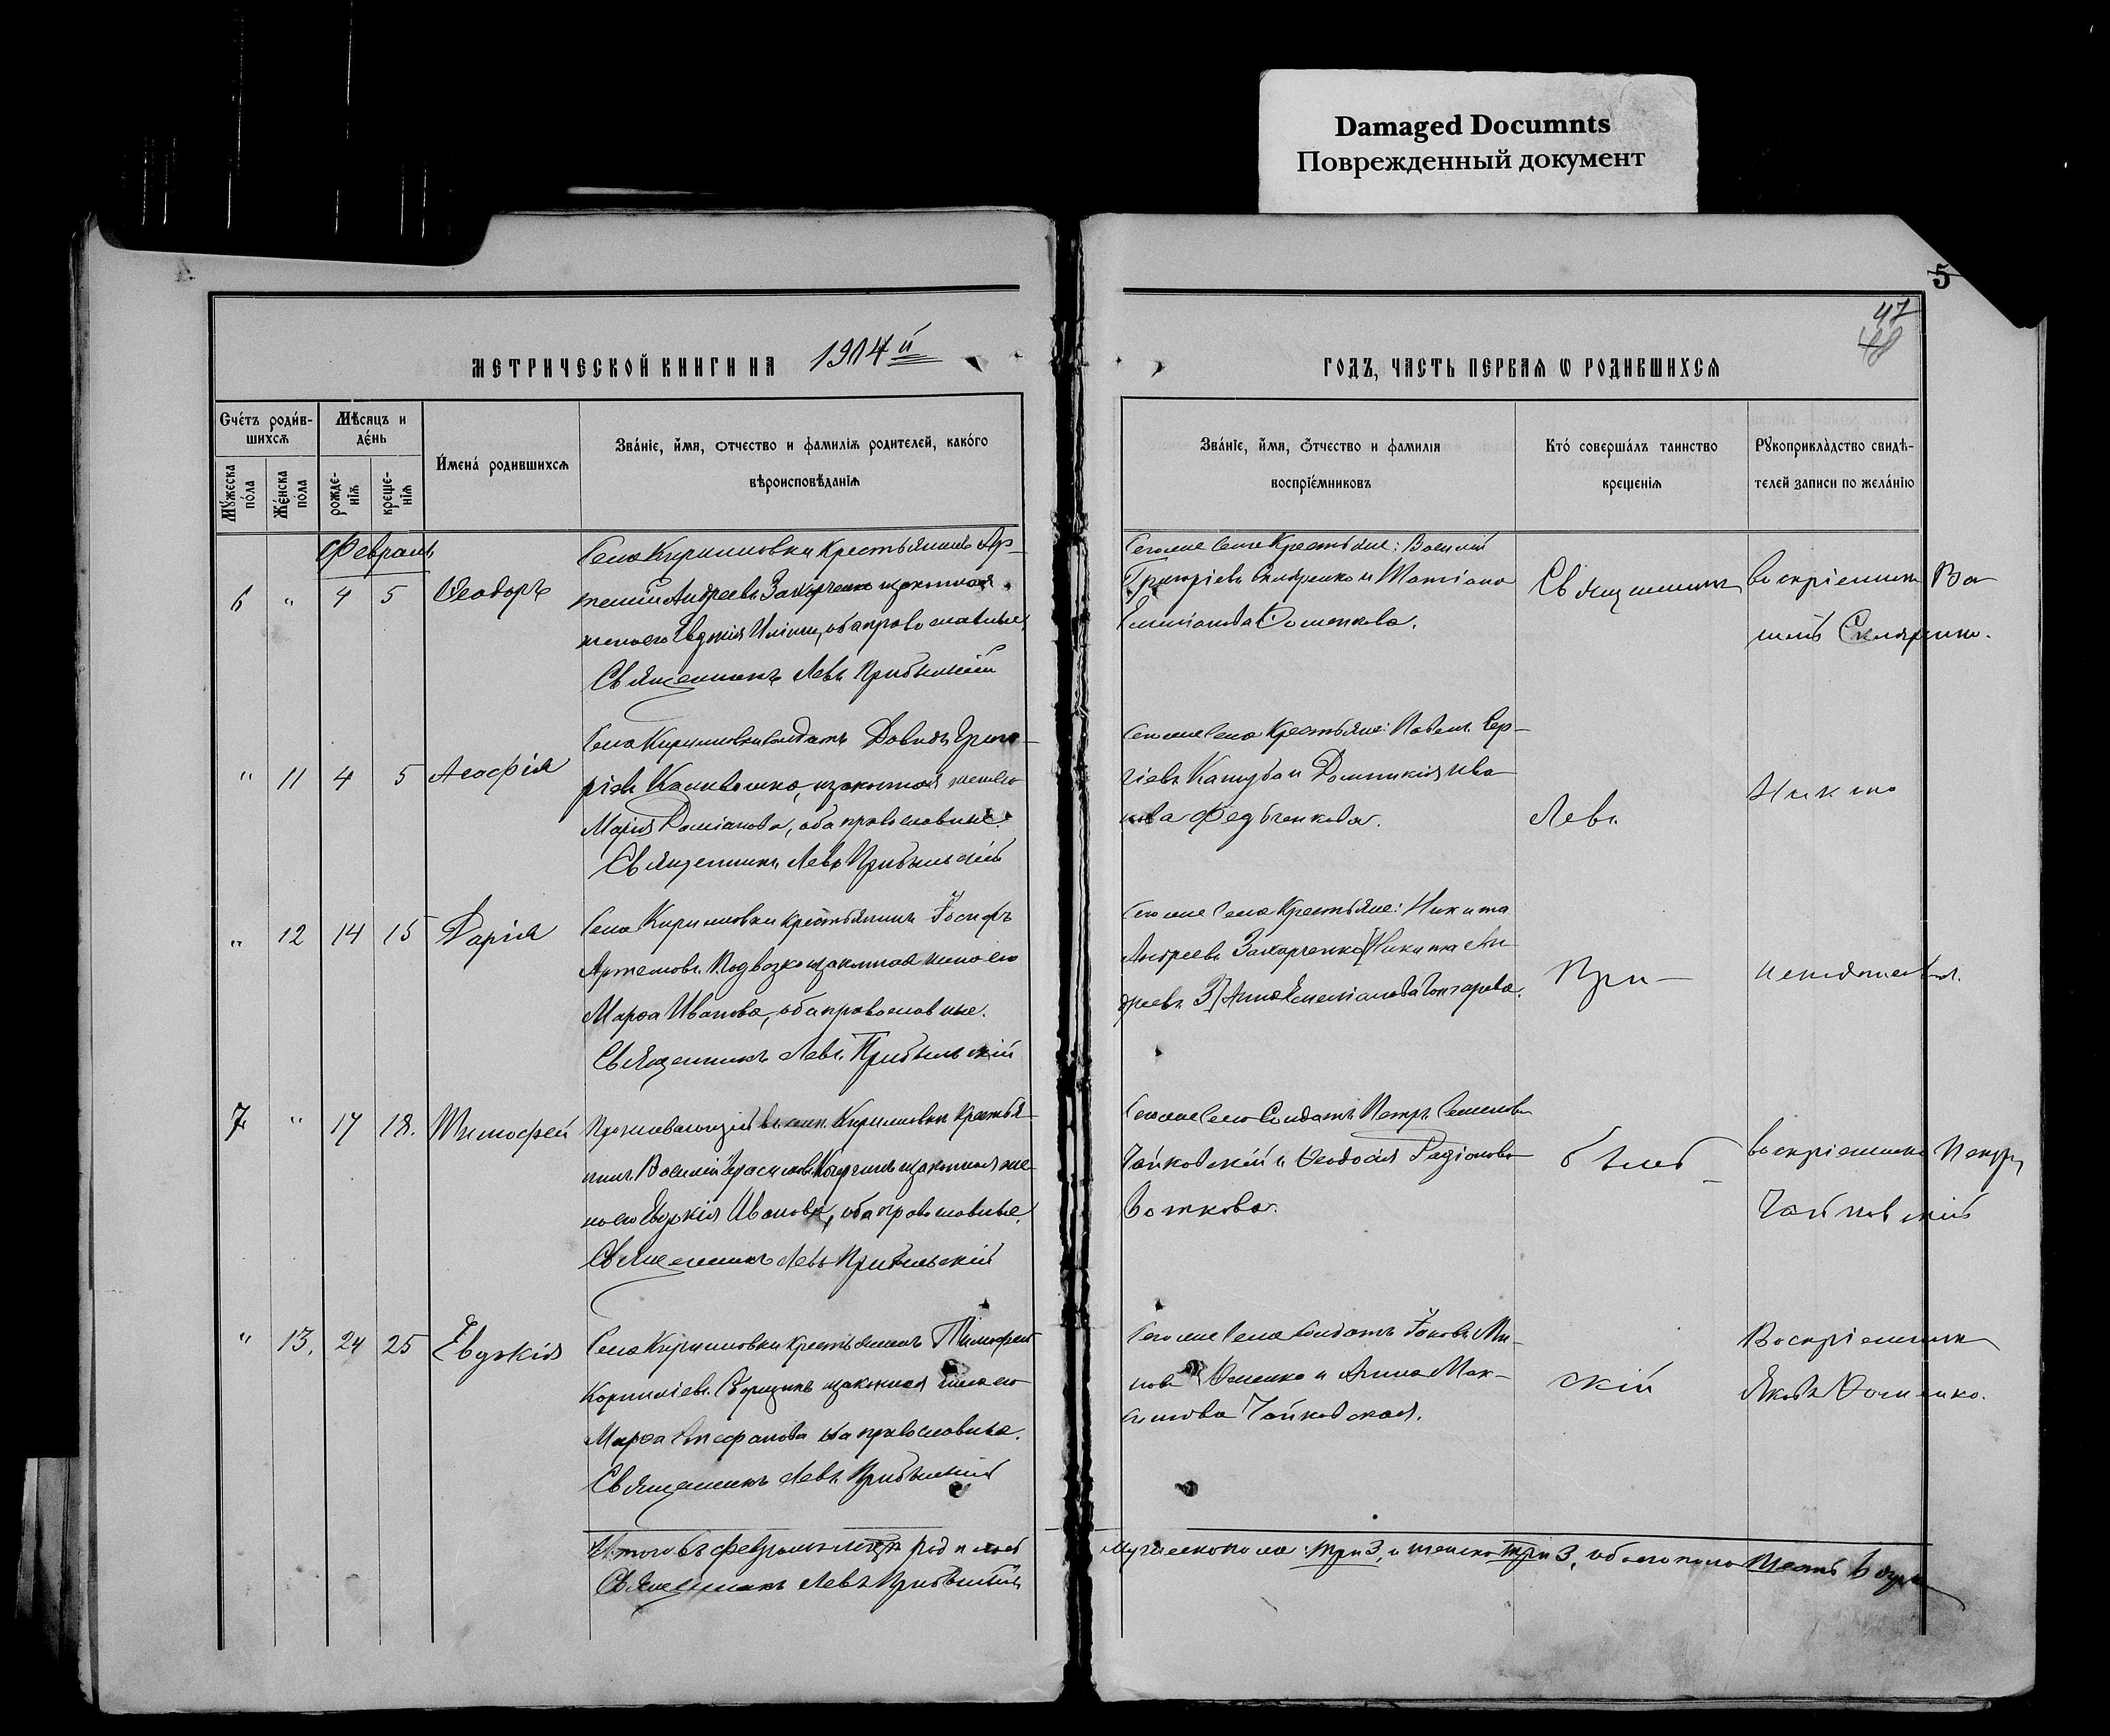 Damaged Documnts
Поврежденный документ
5
47
48
МЕТРИЧЕСКОЙ КНИГИ НА 1914 й
ГОДЪ, ЧАСТЬ ПЕРВАЯ Ѡ РОДИВШИХСЯ
Счетъ родив-
шихся
Мѣсяцъ и
день
Мужеска
пола
Женска
пола
рожде-
нія
креще-
нія
Имена родившихся
Званіе, имя, отчество и фамилія родителей, какого
вѣроисповѣданія
Званіе, имя, отчество и фамилія
воспріемниковъ
Кто совершалъ таинство
крещенія
Рукоприкладство свидѣ-
телей записи по желанію
Февраль
6 " 4 5 Ѳеодоръ
Села Кириловки Крестьянинъ Ар-
темій Андреевъ Захарченко и законная
жена его Евдокія, оба православные,
Священникъ Левъ Прибыльскій
Того же Села Крестьяне: Василій
Григоріевъ Скляренко и Татіана
Емеліанова
Священникъ
воспріемникъ Ва-
силій Скляренко.
" 11 4 5 Агафія
Села Кириловки солдатъ Давидъ Григо-
ріевъ и законная жена его
Марія Даміанова, оба православные.
Священникъ Левъ Прибыльскій
Того же Села Крестьяне: Павелъ Сер-
гіевъ и Домникія Ива-
нова Федченкова.
Левъ
" 12 14 15 Дарія
Села Кириловки крестьянинъ Іосифъ
Артемовъ Подвозко и законная жена его
Марѳа Иванова, оба православные.
Священникъ Левъ Прибыльскій
Того же Села Крестьяне: Никита
Андреевъ Захарченко [Никита Ан-
дреевъ З] Анна Емеліанова Гончарова.
При-
7 " 17 18. Тимофей
Проживающій Кириловки Крестья-
нинъ Василій Герасимовъ и законная же-
на его Евдокія Иванова, оба православные.
Священникъ Левъ Прибыльскій
Того же Села Солдатъ Петръ Семеновъ
Чайковскій и Ѳеодосія Родіонова
быль-
воспріемникъ Петръ
Чайковскій
" 13. 24 25 Евдокія
Села Кириловки крестьянинъ Тимофей
Корниліевъ и законная жена его
Марѳа Стефанова оба православные.
Священникъ Левъ Прибыльскій
Того же Села Солдатъ Іаковъ Ми-
новъ и Анна Мак-
симова Чайковская.
скій
Воспріемникъ
Яковъ
Итого въ февралѣ родилось
мужеска пола три 3, и женска три 3, обоего пола шесть 6 душъ
Священникъ Левъ Прибыльскій